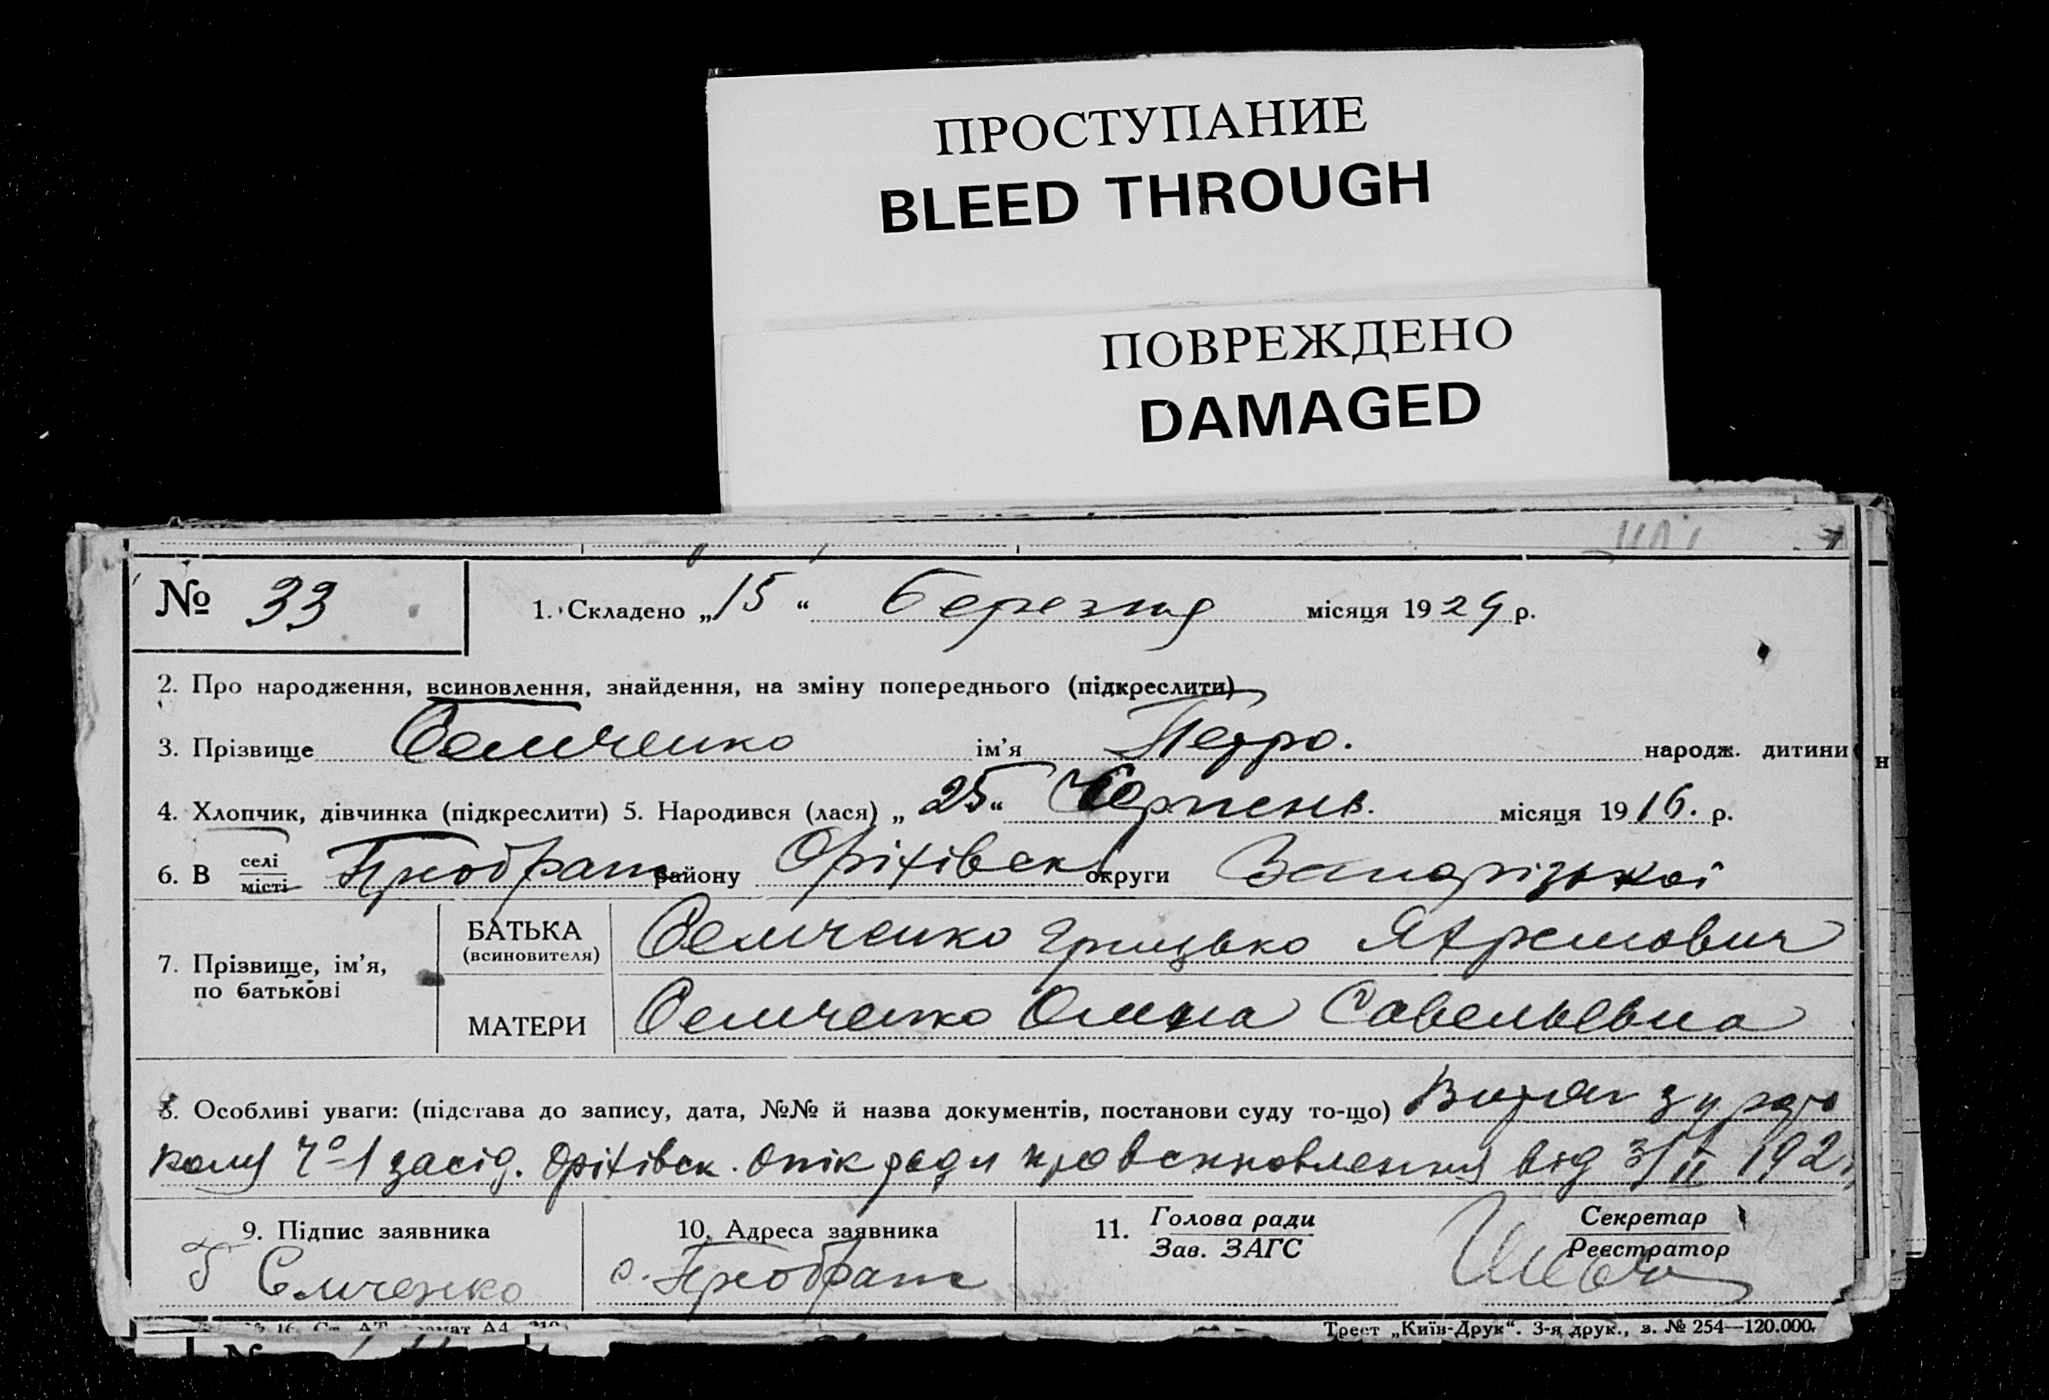 ПРОСТУПАНИЕ
BLEED THROUGH
ПОВРЕЖДЕНО
DAMAGED
№ 33
1. Складено „15“ березня місяця 1929 р.
2. Про народження, всиновлення, знайдення, на зміну попереднього (підкреслити)
3. Прізвище Семченко ім’я Петро. народж. дитини
4. Хлопчик, дівчинка (підкреслити) 5. Народився (лася) „25“ Серпень. місяця 1916. р.
6. В селі місті Преображ району Оріхівськ округи Запорізької
7. Прізвище, ім’я, по батькові
БАТЬКА (всиновителя) Семченко Грицько
МАТЕРИ Семченко Савельевна
8. Особливі уваги: (підстава до запису, дата, №№ й назва документів, постанови суду то-що) Витяг з прото
колу Ч° 1 засід. Оріхівск. опік ради про всиновлення від 3/II 192
9. Підпис заявника
Г Семченко
10. Адреса заявника
с. Преображ
11. Голова ради
Зав. ЗАГС
Секретар
Реєстратор
Трест „Київ-Друк“. 3-я друк., з. № 254—120.000.